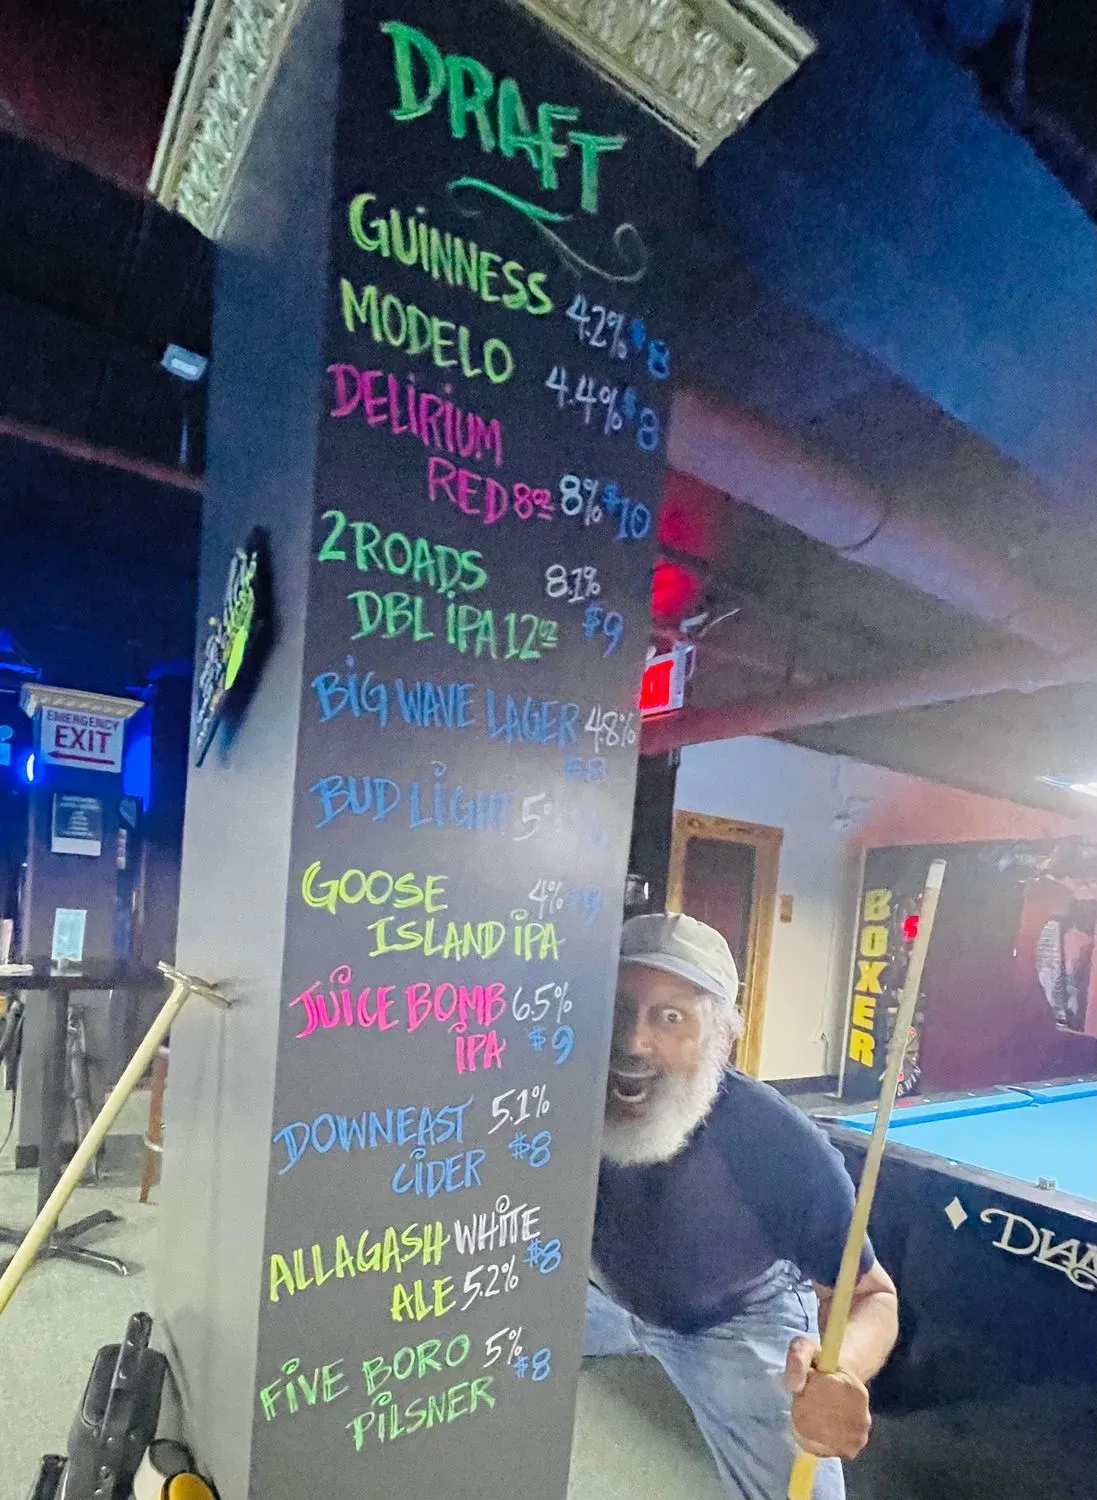 DRAFT
GUINNESS 4.2% $8
MODELO 4.4% $8
DELIRIUM
RED 8oz 8% $10
2 ROADS 8.1%
DBL IPA 12oz $9
BIG WAVE LAGER 4.8%
$8
BUD LIGHT 5%
GOOSE 4% $9
ISLAND IPA
JUICE BOMB 6.5%
IPA $9
DOWNEAST 5.1%
CIDER $8
ALLAGASH WHITE
ALE 5.2% $8
FIVE BORO 5% $8
PILSNER
EMERGENCY
EXIT
BOXER